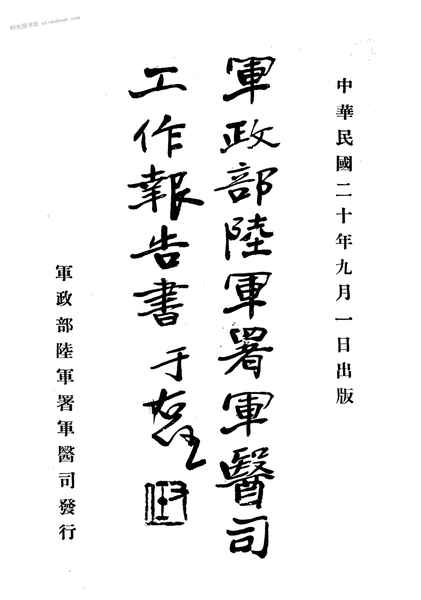 中華民國二十年九月一日出版
軍政部陸軍署軍醫司
工作報告書 于右任
軍政部陸軍署軍醫司發行